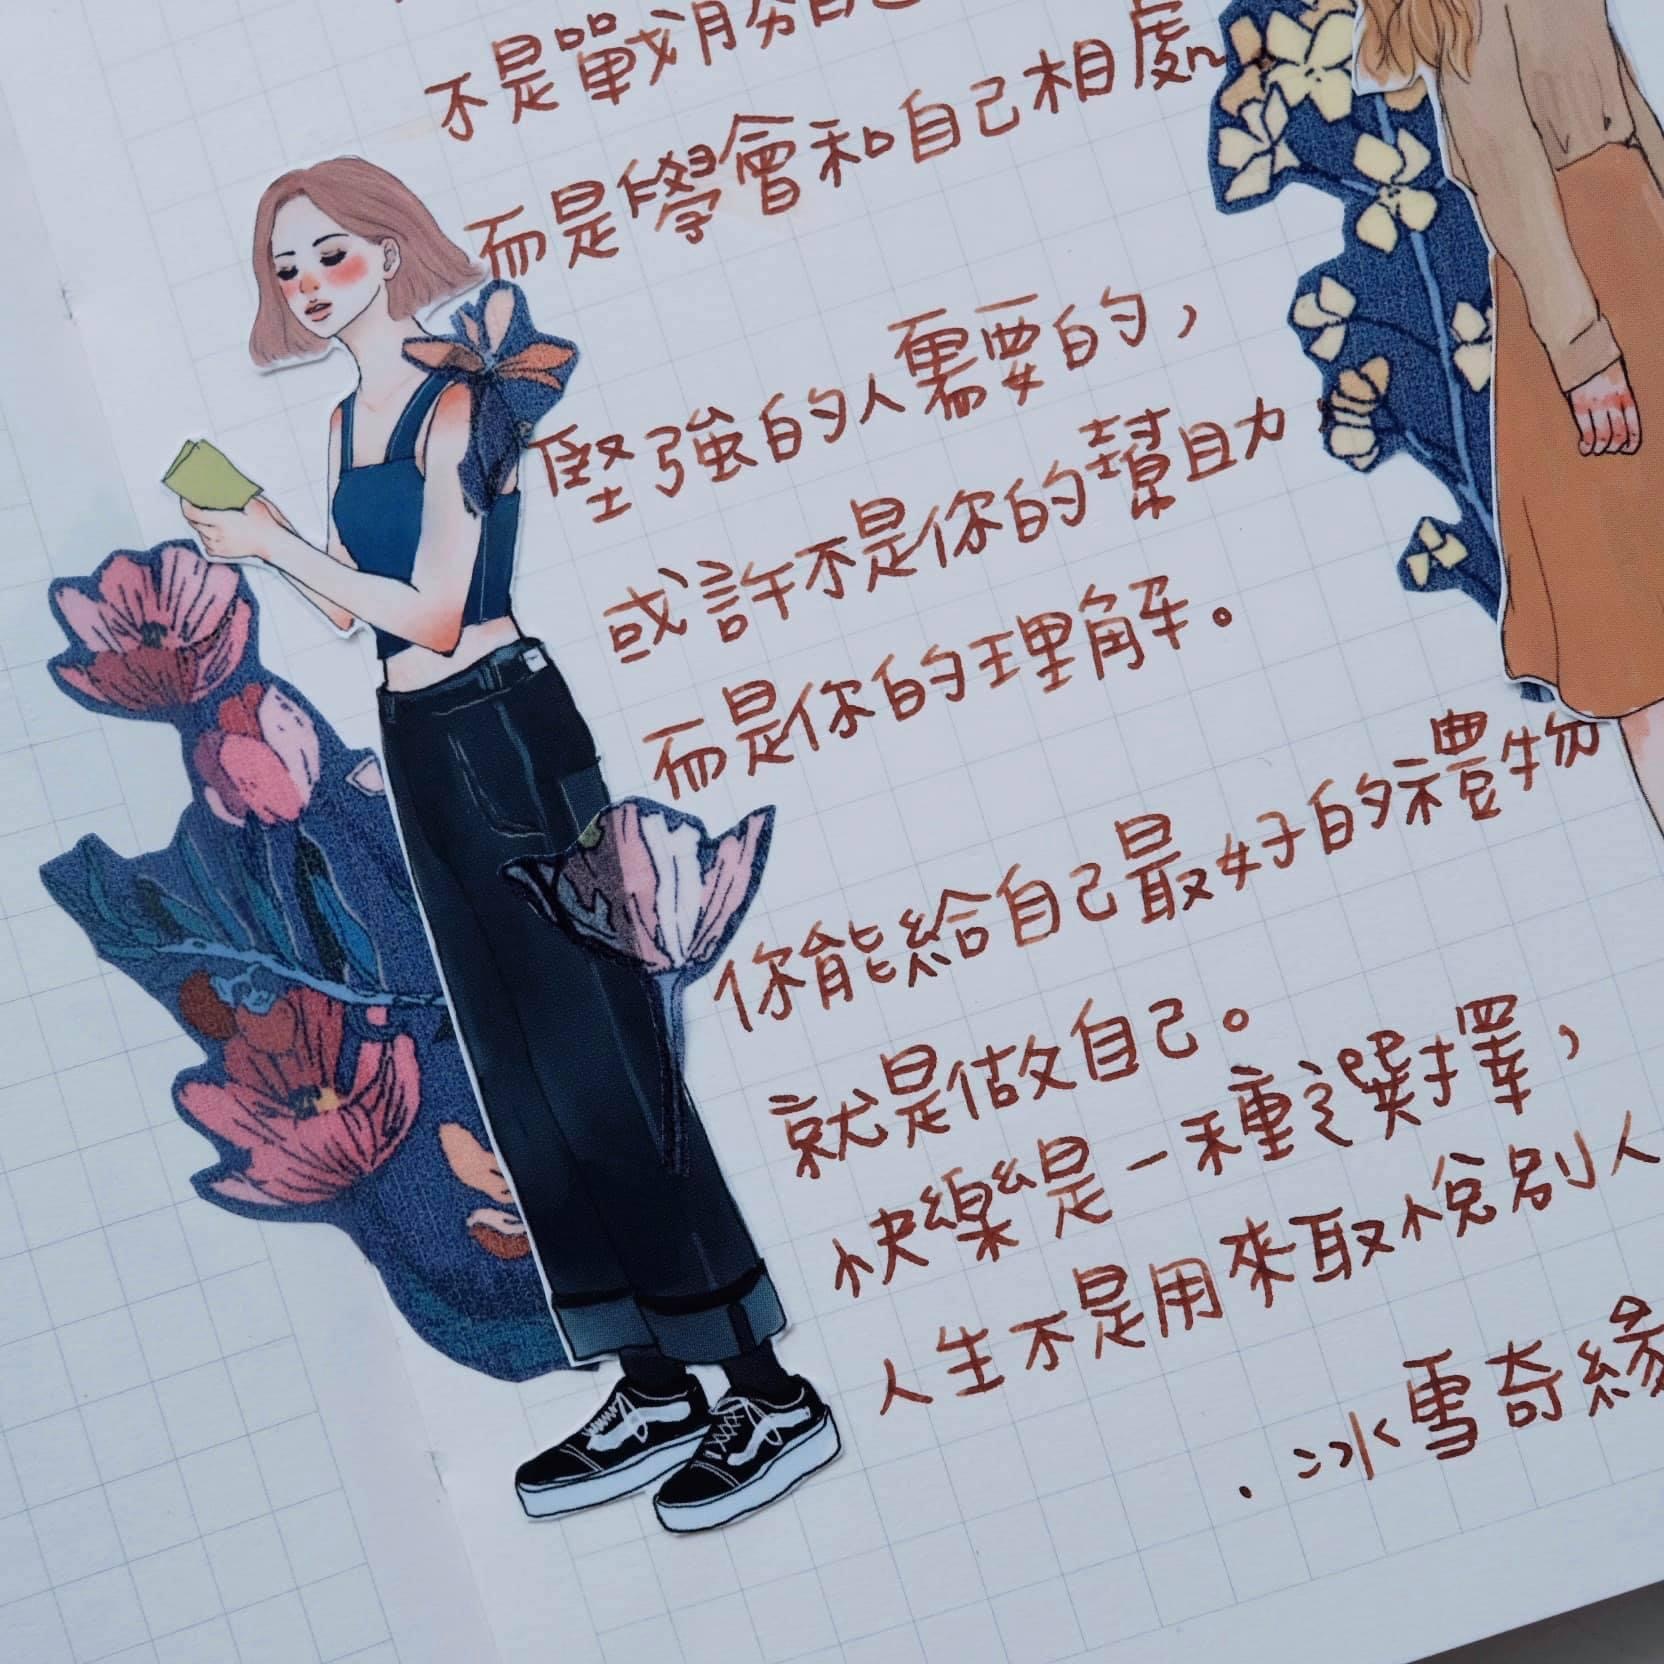 不是戰勝自己
而是學會和自己相處
堅強的人需要的，
或許不是你的幫助
而是你的理解。
你能給自己最好的禮物
就是做自己。
快樂是一種選擇，
人生不是用來取悅別人
．冰雪奇緣